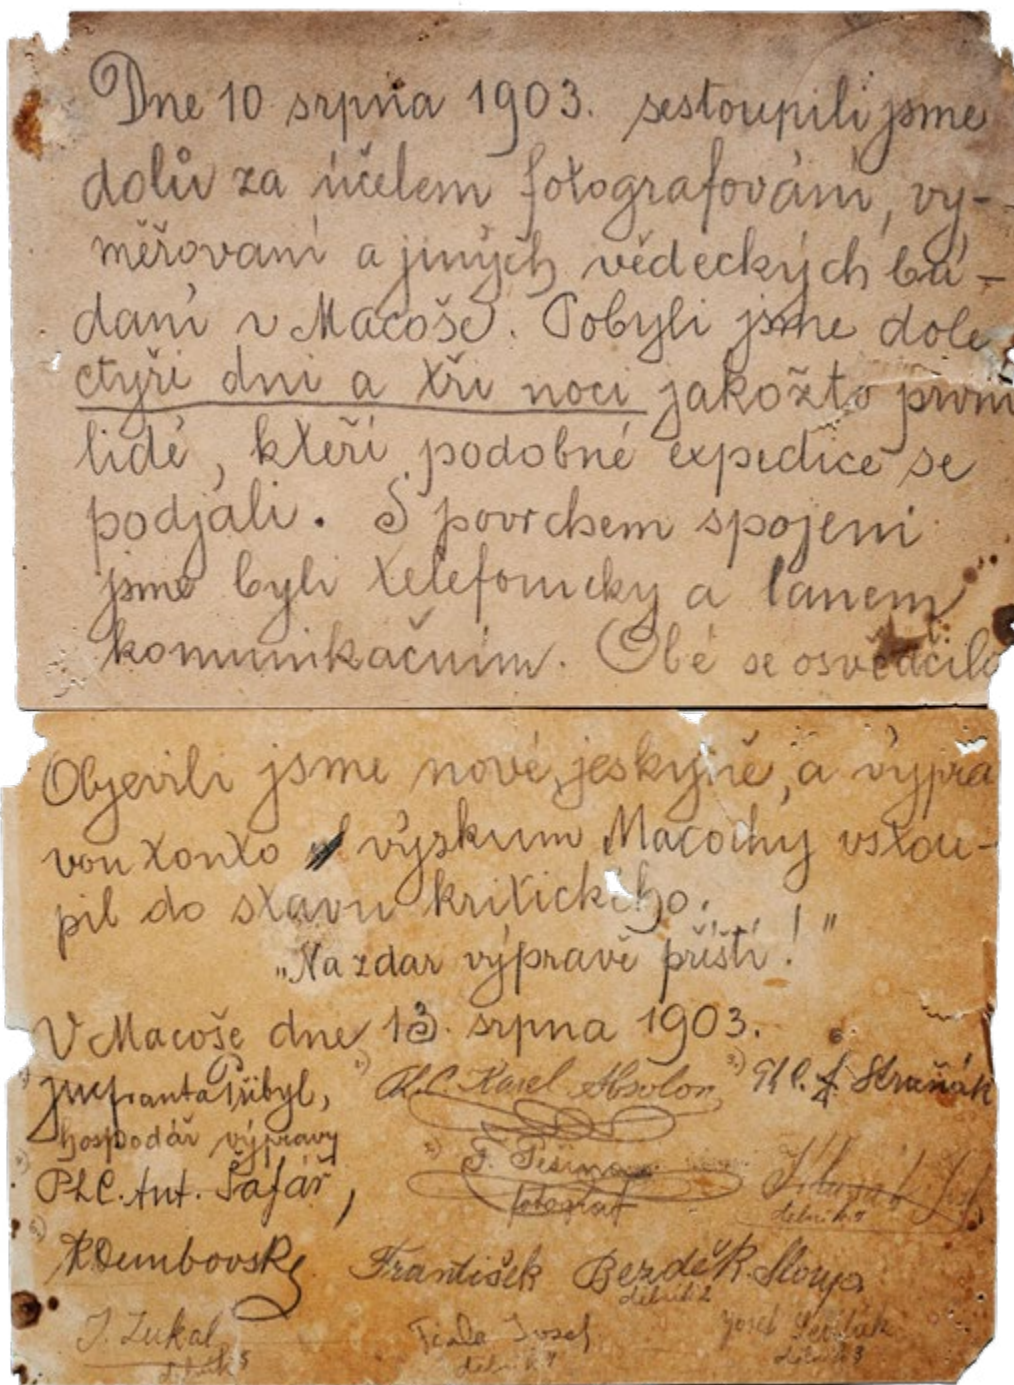 Dne 10 srpna 1903. sestoupili jsme
dolů za účelem fotografování, vy-
měřovaní a jiných vědeckých bá-
daní v Macoše. Pobyli jsme dole
čtyři dni a tři noci jakožto první
lidé, kteří podobné expedice se
podjali. S povrchem spojeni
jsme byli telefonicky a lanem
komunikačním. Obé se osvědčilo
Objevili jsme nové jeskyně, a výpra
vou touto výzkum Macochy vstou-
pil do stavu kritického.
„Na zdar výpravě příští!"
V Macoše dne 13. srpna 1903.
Přibyl, PhC. Karel Absolon PhC.
hospodář výpravy
fotograf
PhC. Ant. Šafář,
dělník
František Bezděk
dělník 2
J. Zukal Fiala Josef Josef
dělník 5 dělník dělník 3